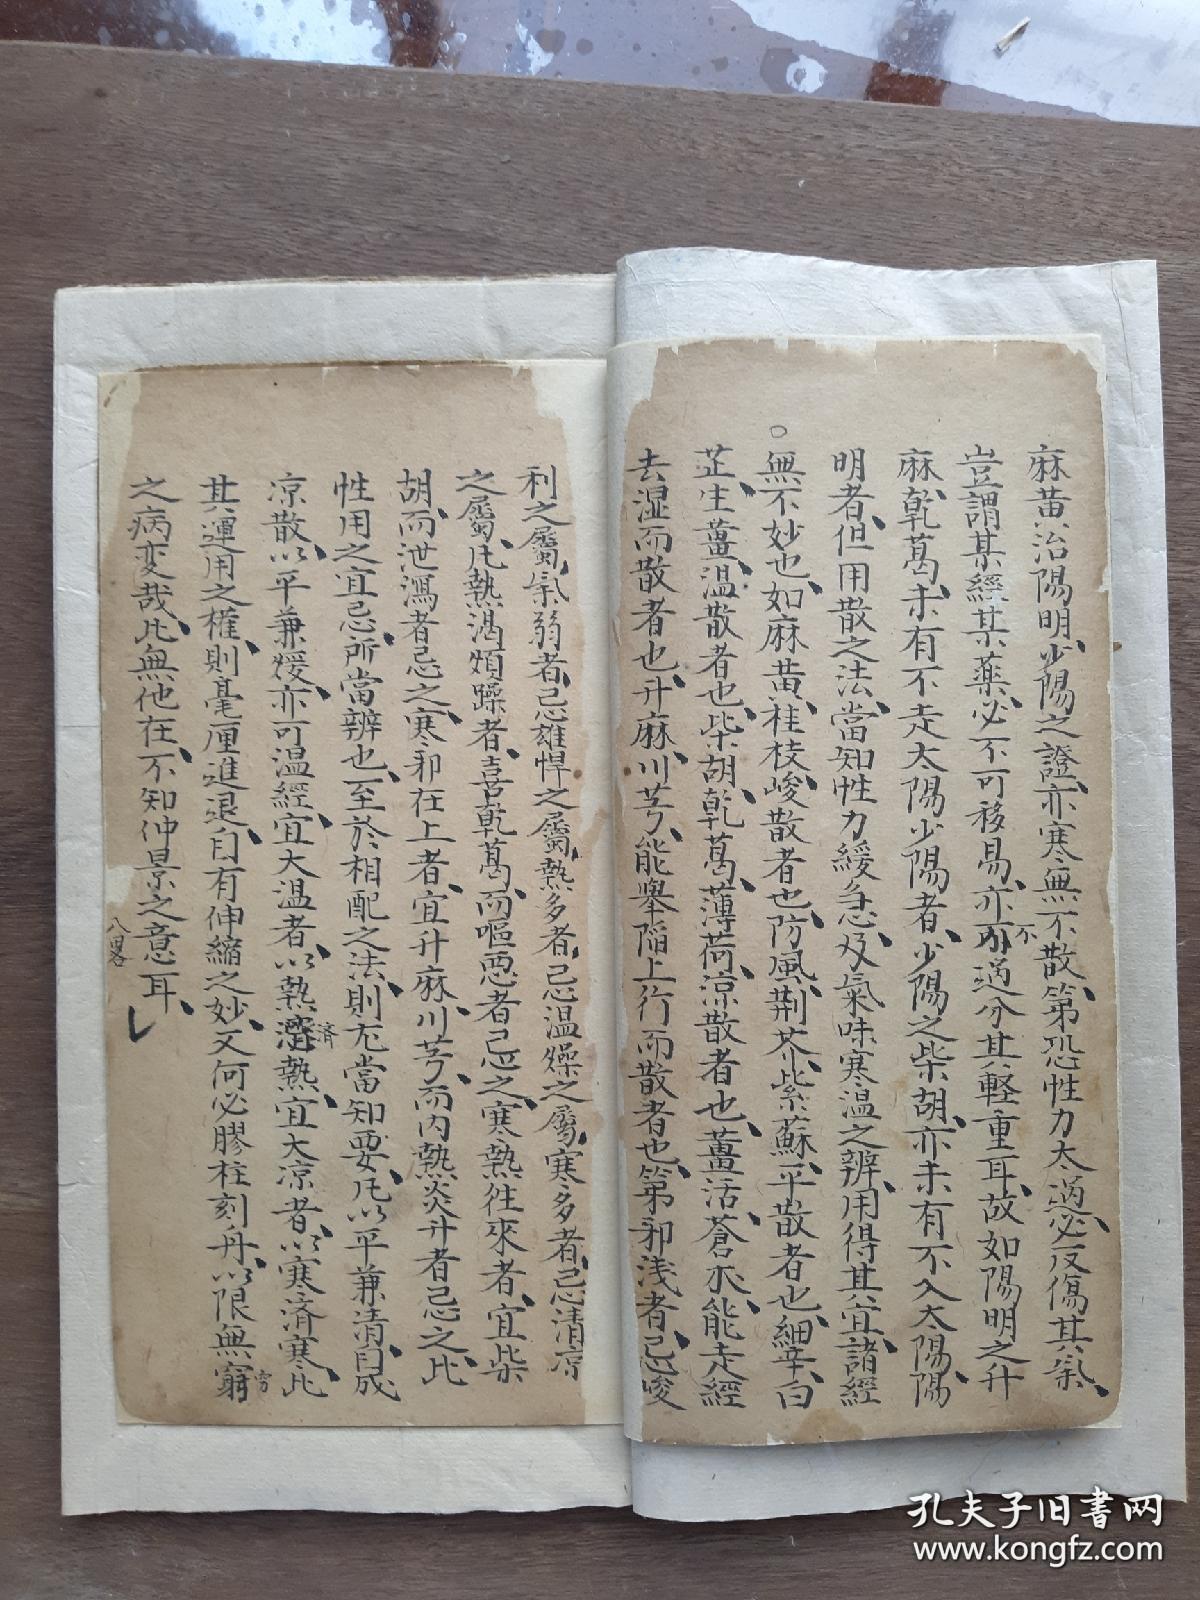 麻黃治陽明少陽之證亦寒無不散第恐性力太過必反傷其氣
豈謂某經某薬必不可移易亦不過分其軽重耳故如陽明之升
麻乾葛未有不走太陽少陽者少陽之柴胡亦未有不入太陽陽
明者但用散之法當知性力緩急及氣味寒温之辨用得其宜諸經
無不妙也如麻黄桂枝峻散者也防風荆芥紫蘇平散者也細辛白
芷生薑温散者也柴胡乾葛薄荷凉散者也薑活蒼朮能走經
去湿而散者也升麻川芎能舉陷上行而散者也第邪浅者忌峻
利之屬氣弱者忌雄悍之屬熱多者忌温燥之屬寒多者忌清凉
之屬凡熱渴煩躁者喜乾葛而嘔惡者忌之寒熱往來者宜柴
胡而泄瀉者忌之寒邪在上者宜升麻川芎而内熱炎升者忌之此
性用之宜忌所當辨也至於相配之法則尤當知要凡以平兼清自成
凉散以平兼煖亦可温經宜大温者以熱濟熱宜大凉者以寒済寒此
済
其運用之權則毫厘進退自有伸縮之妙又何必膠柱刻舟以限無窮
之病変哉此無他在不知仲景之意耳
孔夫子旧書网
www.kongfz.com